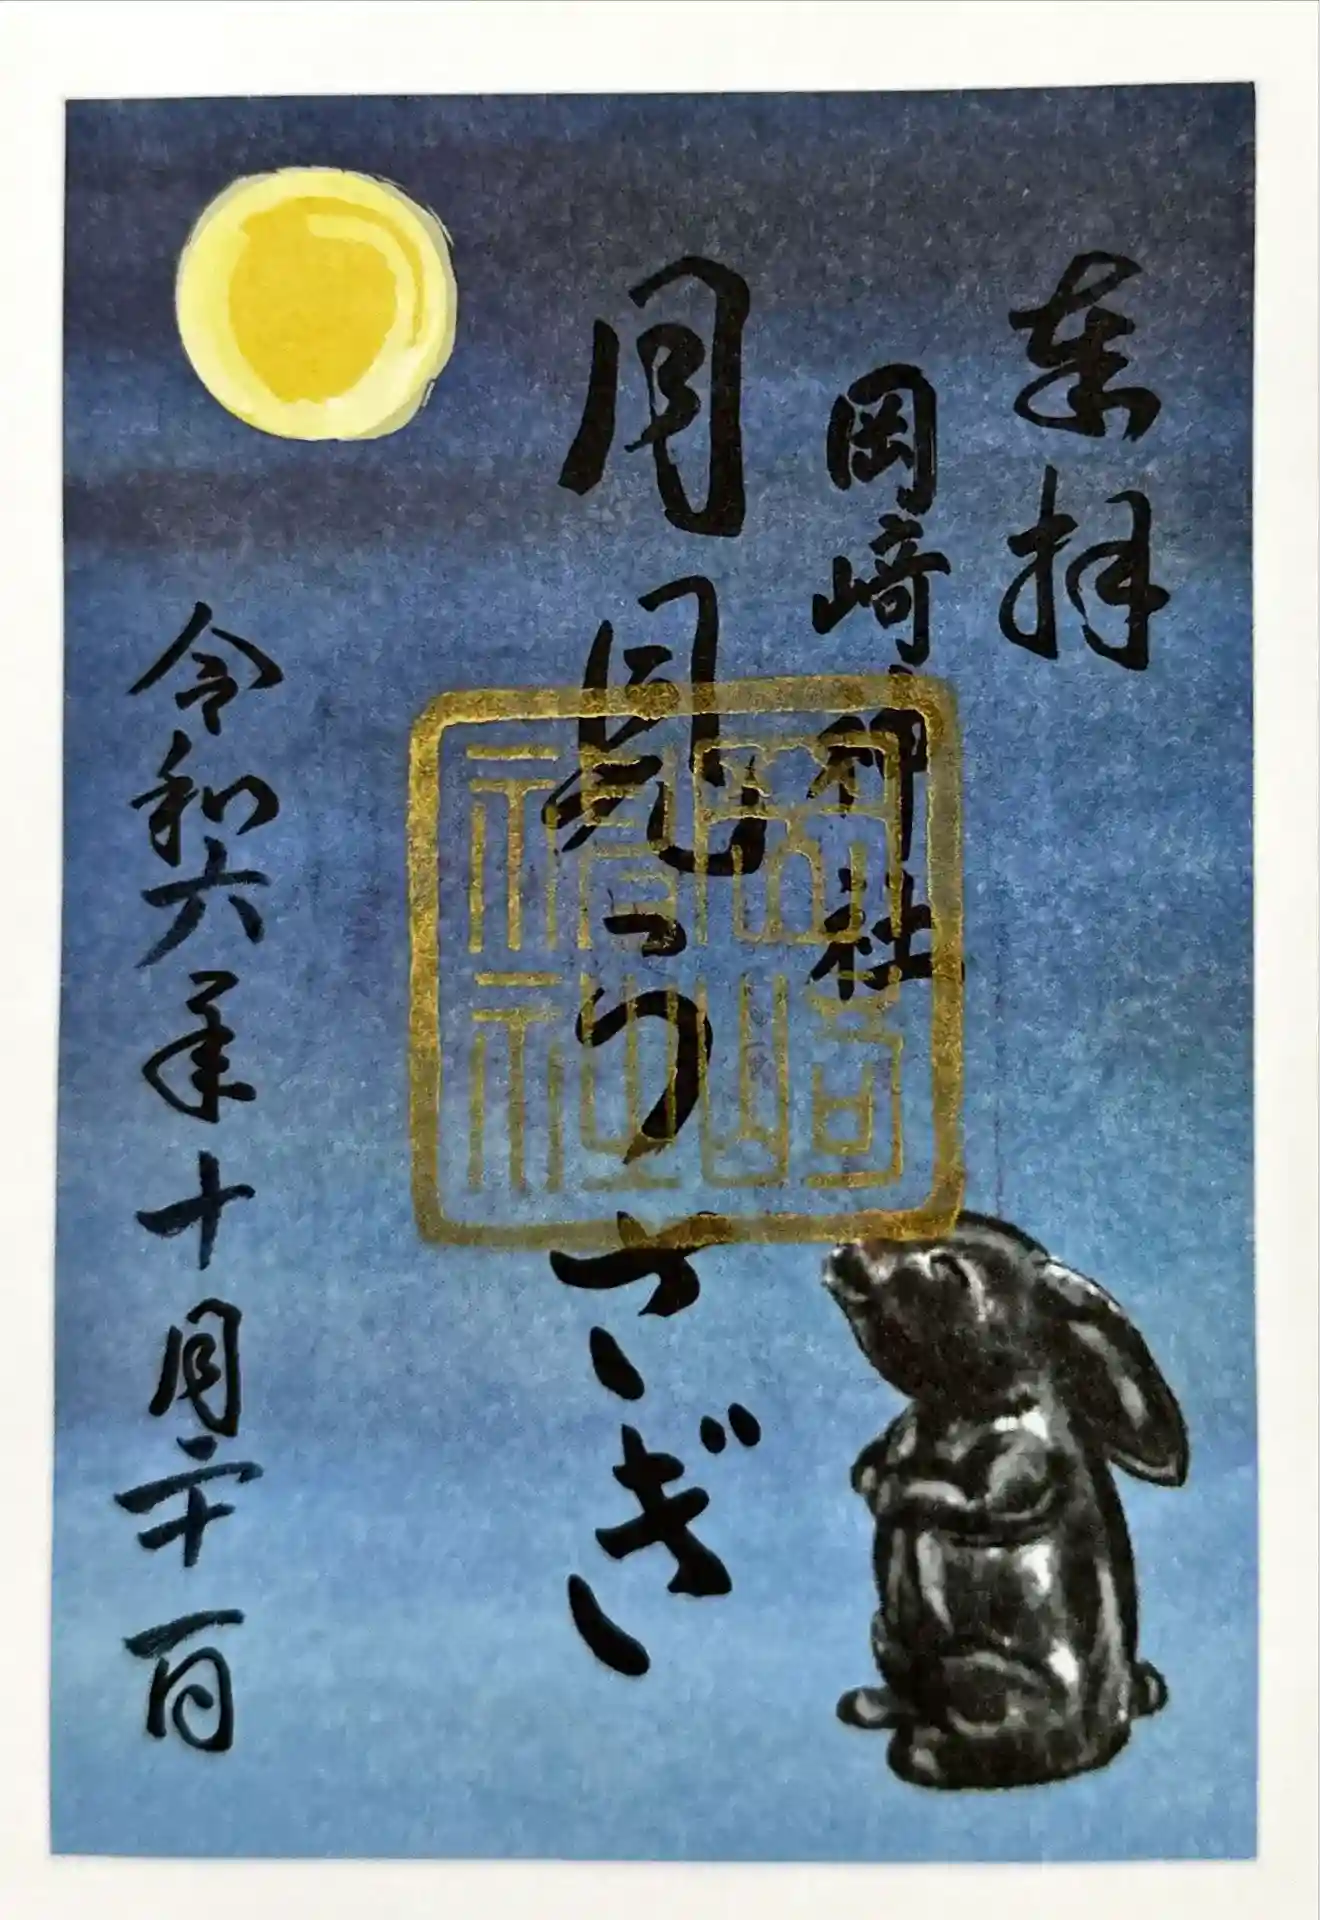 奉拝
岡崎神社
月見うさぎ
岡崎神社
令和六年十月二十一日